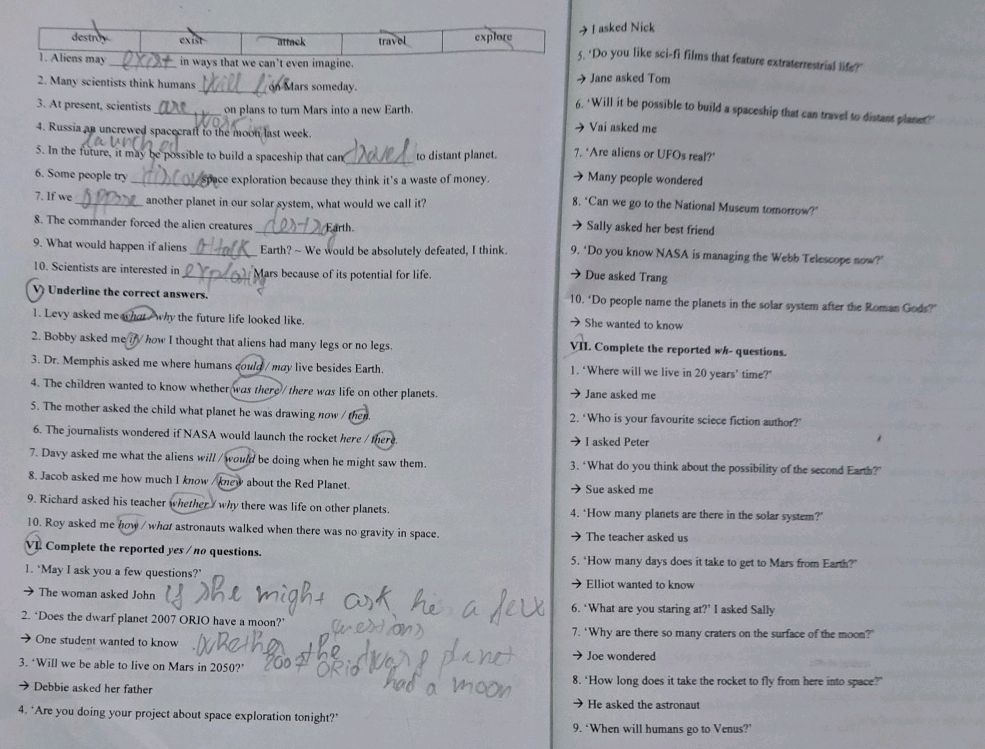 destroy exist attack travel explore
1. Aliens may exist in ways that we can't even imagine.
2. Many scientists think humans will live on Mars someday.
3. At present, scientists are working on plans to turn Mars into a new Earth.
4. Russia an uncrewed spacecraft to the moon last week.
launched
5. In the future, it may be possible to build a spaceship that can travel to distant planet.
6. Some people try discov space exploration because they think it's a waste of money.
7. If we oppose another planet in our solar system, what would we call it?
8. The commander forced the alien creatures destroy Earth.
9. What would happen if aliens attalk Earth? ~ We would be absolutely defeated, I think.
10. Scientists are interested in exploring Mars because of its potential for life.
V) Underline the correct answers.
1. Levy asked me what / why the future life looked like.
2. Bobby asked me if / how I thought that aliens had many legs or no legs.
3. Dr. Memphis asked me where humans could / may live besides Earth.
4. The children wanted to know whether was there / there was life on other planets.
5. The mother asked the child what planet he was drawing now / then.
6. The journalists wondered if NASA would launch the rocket here / there.
7. Davy asked me what the aliens will / would be doing when he might saw them.
8. Jacob asked me how much I know / knew about the Red Planet.
9. Richard asked his teacher whether / why there was life on other planets.
10. Roy asked me how / what astronauts walked when there was no gravity in space.
VI. Complete the reported yes / no questions.
1. 'May I ask you a few questions?'
→ The woman asked John if she might ask he a few
questions
2. 'Does the dwarf planet 2007 ORIO have a moon?'
→ One student wanted to know whether the dwarf planet
3. 'Will we be able to live on Mars in 2050?' 2007 ORIO had a moon
→ Debbie asked her father
4. 'Are you doing your project about space exploration tonight?'
→ I asked Nick
5. 'Do you like sci-fi films that feature extraterrestrial life?'
→ Jane asked Tom
6. 'Will it be possible to build a spaceship that can travel to distant planet?'
→ Vai asked me
7. 'Are aliens or UFOs real?'
→ Many people wondered
8. 'Can we go to the National Museum tomorrow?'
→ Sally asked her best friend
9. 'Do you know NASA is managing the Webb Telescope now?'
→ Due asked Trang
10. 'Do people name the planets in the solar system after the Roman Gods?'
→ She wanted to know
VII. Complete the reported wh- questions.
1. 'Where will we live in 20 years' time?'
→ Jane asked me
2. 'Who is your favourite sciece fiction author?'
→ I asked Peter
3. 'What do you think about the possibility of the second Earth?'
→ Sue asked me
4. 'How many planets are there in the solar system?'
→ The teacher asked us
5. 'How many days does it take to get to Mars from Earth?'
→ Elliot wanted to know
6. 'What are you staring at?' I asked Sally
7. 'Why are there so many craters on the surface of the moon?'
→ Joe wondered
8. 'How long does it take the rocket to fly from here into space?'
→ He asked the astronaut
9. 'When will humans go to Venus?'